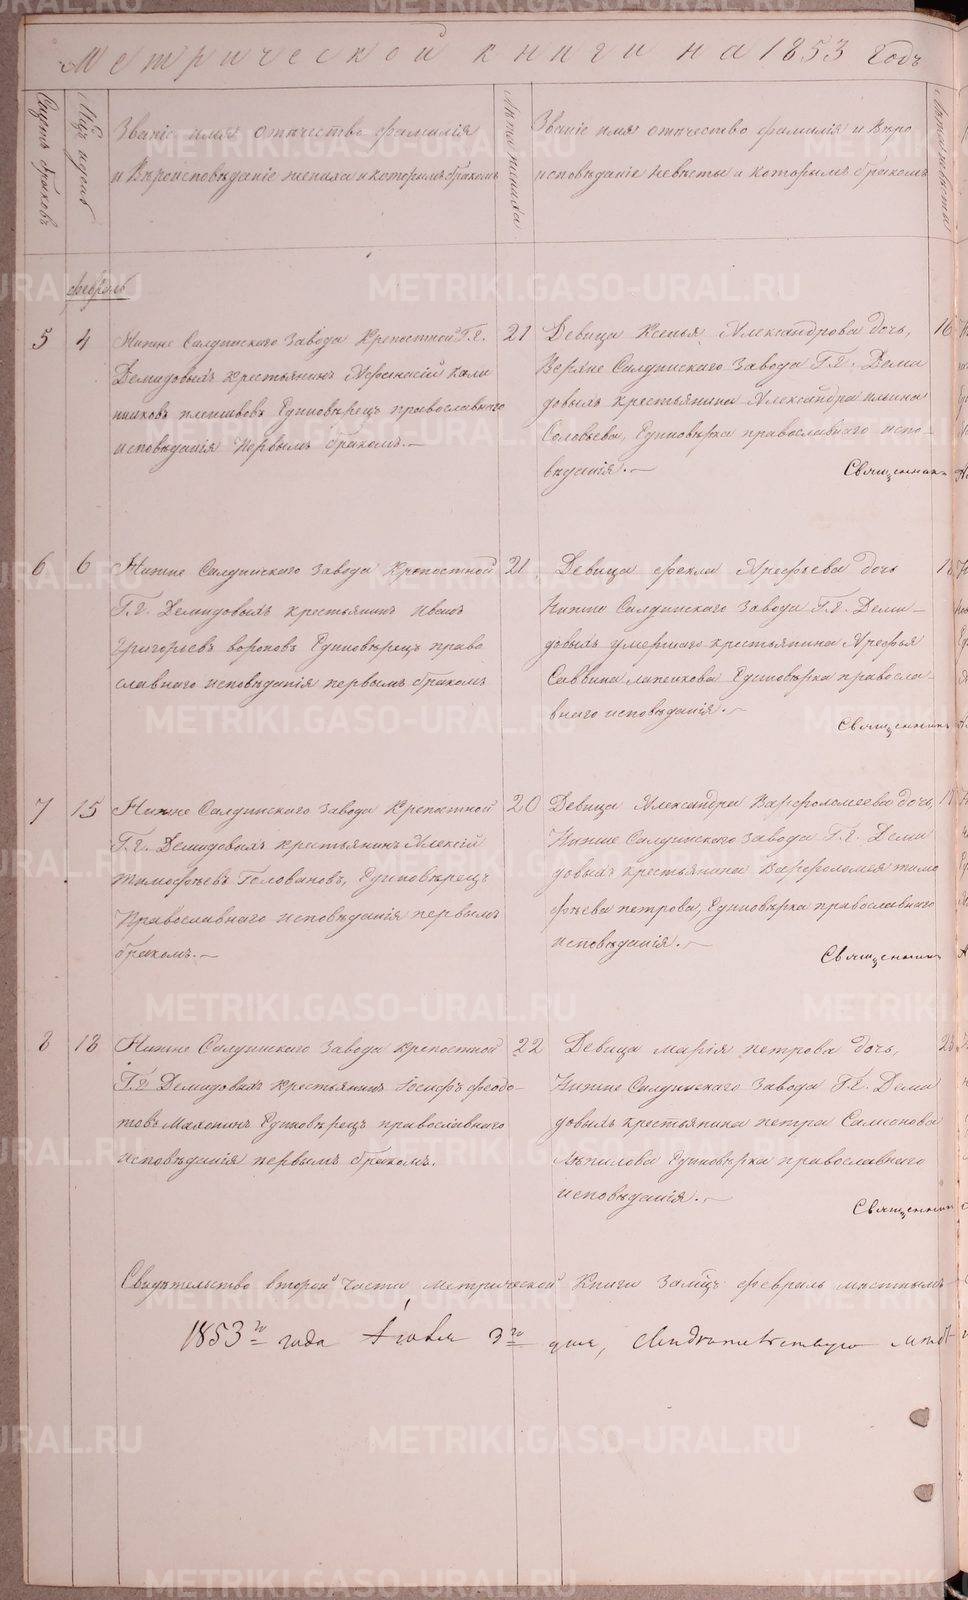 Метрической книги на 1853 Годъ
Счетъ браковъ
Мѣс. и день
Званіе имя отчество фамилія
и Вѣроисповѣданіе жениха и которымъ бракомъ
Лѣта жениха
Званіе имя отчество фамилія и Вѣро
исповѣданіе Невѣсты и Которымъ бракомъ
Лѣта невѣсты
февраль
5 4 Нижне Салдинскаго завода Крепостной Г.г. 21
Демидовыхъ Крестьянинъ Афанасій Кали
никовъ плешивовъ Единовѣрецъ православнаго
исповѣданія Первымъ бракомъ.
Девица Ксенья Александрова дочь, 16
Верхне Салдинскаго Завода Г.г. Деми
довыхъ крестьянина Александра ильина
Соловьева, Единовѣрка православнаго испо-
вѣданія.
Священник
6 6 Нижне Салдинскаго завода Крепостной 21
Г.г. Демидовыхъ крестьянинъ Иванъ
Григорьевъ вороновъ Единовѣрецъ право
славнаго исповѣданія первымъ бракомъ
Девица фекла Арефьева дочь
Нижне Салдинскаго завода Г.г. Деми-
довыхъ умершаго крестьянина Арефья
Саввина лапенкова Единовѣрка правосла-
внаго исповѣданія.
Священникъ
7 15 Нижне Салдинскаго завода Крепостной 20
Г.г. Демидовыхъ крестьянинъ Алексій
тимофѣевъ Головановъ, Единовѣрецъ
Православнаго исповѣданія первымъ
бракомъ.
Девица Александра Варфоломеева дочь,
Нижне Салдинскаго завода Г.г. Деми
довыхъ крестьянина Варфоломея тимо
фѣева петрова, Единовѣрка православнаго
исповѣданія.
Священникъ
8 18 Нижне Салдинскаго завода крепостной 22
Г.г. Демидовыхъ крестьянинъ Іосифъ федо-
товъ Махонинъ Единовѣрецъ православнаго
исповѣданія первымъ бракомъ.
Девица марія петрова дочь,
Нижне Салдинскаго завода Г.г. Деми
довыхъ крестьянина петра Самсонова
Единовѣрка православнаго
исповѣданія.
Священник
Свидѣтельство второй части метрической Книги За мцъ февраль мѣстнымъ
1853го года 3го дня, Свидѣтельствую
METRIKI.GASO-URAL.RU